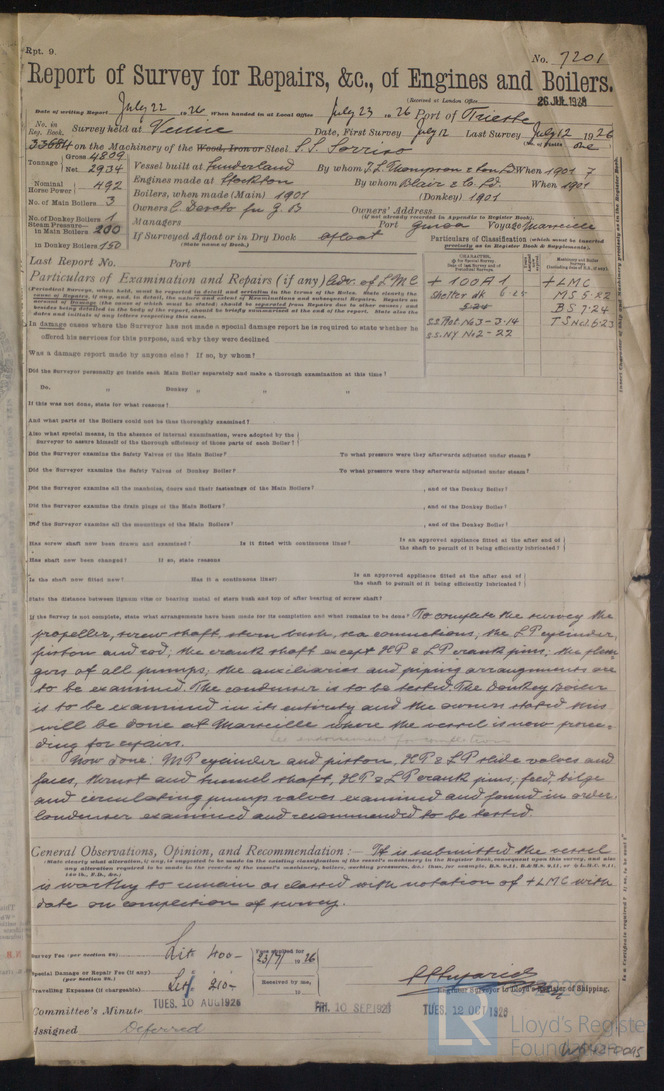 Rpt. 9.
No. 7201
Report of Survey for Repairs, &c., of Engines and Boilers.
(Received at London Office 26 JUL 1926
Date of writing Report July 22 1926 When handed in at Local Office July 23 1926 Port of Trieste
No. in Reg. Book. Survey held at Venice Date, First Survey July 12 Last Survey July 12 1926
33684 on the Machinery of the Wood, Iron or Steel S.S. Sorrino (No. of Visits One)
Tonnage Gross 4809 Net 2934
Vessel built at Sunderland By whom J.L. Thompson & Son Ld When 1901 7
Nominal Horse Power 492 Engines made at Stockton By whom Blair & C. Ld. When 1901
No. of Main Boilers 3 Boilers, when made (Main) 1901 (Donkey) 1901
No. of Donkey Boilers 1 Owners Owners' Address
(if not already recorded in Appendix to Register Book).
Steam Pressure in Main Boilers 200 Managers Port Genoa Voyage Marseille
in Donkey Boilers 150 If Surveyed Afloat or in Dry Dock afloat
(State name of Dock.)
Particulars of Classification (which must be inserted precisely as in Register Book & Supplements).
Last Report No. Port
+ 100A1 + LMC
Shelter dk MS 5.22
BS 7.24
S.S. No 3 - 3.14 TS No1. 5.23
S.S. NY No 2 - 22
Particulars of Examination and Repairs (if any) Adv. of LMC
In damage cases where the Surveyor has not made a special damage report he is required to state whether he
offered his services for this purpose, and why they were declined
Was a damage report made by anyone else? If so, by whom?
Did the Surveyor personally go inside each Main Boiler separately and make a thorough examination at this time?
Do. „ Donkey „ „ „
If this was not done, state for what reasons?
And what parts of the Boilers could not be thus thoroughly examined?
Also what special means, in the absence of internal examination, were adopted by the
Surveyor to assure himself of the thorough efficiency of those parts of each Boiler?
Did the Surveyor examine the Safety Valves of the Main Boiler? To what pressure were they afterwards adjusted under steam?
Did the Surveyor examine the Safety Valves of Donkey Boiler? To what pressure were they afterwards adjusted under steam?
Did the Surveyor examine all the manholes, doors and their fastenings of the Main Boilers? , and of the Donkey Boiler?
Did the Surveyor examine the drain plugs of the Main Boilers? , and of the Donkey Boiler?
Did the Surveyor examine all the mountings of the Main Boilers? , and of the Donkey Boiler?
Has screw shaft now been drawn and examined? Is it fitted with continuous liner? Is an approved appliance fitted at the after end of
the shaft to permit of it being efficiently lubricated?
Has shaft now been changed? If so, state reasons
Is the shaft now fitted new? Has it a continuous liner? Is an approved appliance fitted at the after end of
the shaft to permit of it being efficiently lubricated?
State the distance between lignum vitæ or bearing metal of stern bush and top of after bearing of screw shaft?
If the Survey is not complete, state what arrangements have been made for its completion and what remains to be done? To complete the survey the
propeller, screw shaft, stern bush, sea connections, the LP cylinder,
piston and rod; the crank shaft except HP & LP crank pins; the plun-
gers of all pumps; the auxiliaries and piping arrangements are
to be examined. The condenser is to be tested. The Donkey Boiler
is to be examined in its entirety and the owners stated this
will be done at Marseille where the vessel is now procee-
ding for repairs. See endorsement for completion
Now done: MP cylinder and piston, HP & LP slide valves and
faces, thrust and tunnel shaft, HP & LP crank pins; feed, bilge
and circulating pumps valves examined and found in order.
Condenser examined and recommended to be tested.
General Observations, Opinion, and Recommendation:— It is submitted the vessel
is worthy to remain as classed with notation of + LMC with
date on completion of survey.
Survey Fee (per Section 29) Lit. 400- Fees applied for 23/7/1926
Special Damage or Repair Fee (if any) (per Section 29.)
Travelling Expenses (if chargeable) Lit. 210- Received by me,
Engineer Surveyor to Lloyd's Register of Shipping.
Committee's Minute TUES. 10 AUG 1926 FRI. 10 SEP 1926 TUES. 12 OCT 1926
Assigned Deferred
LR
Lloyd's Register
Foundation